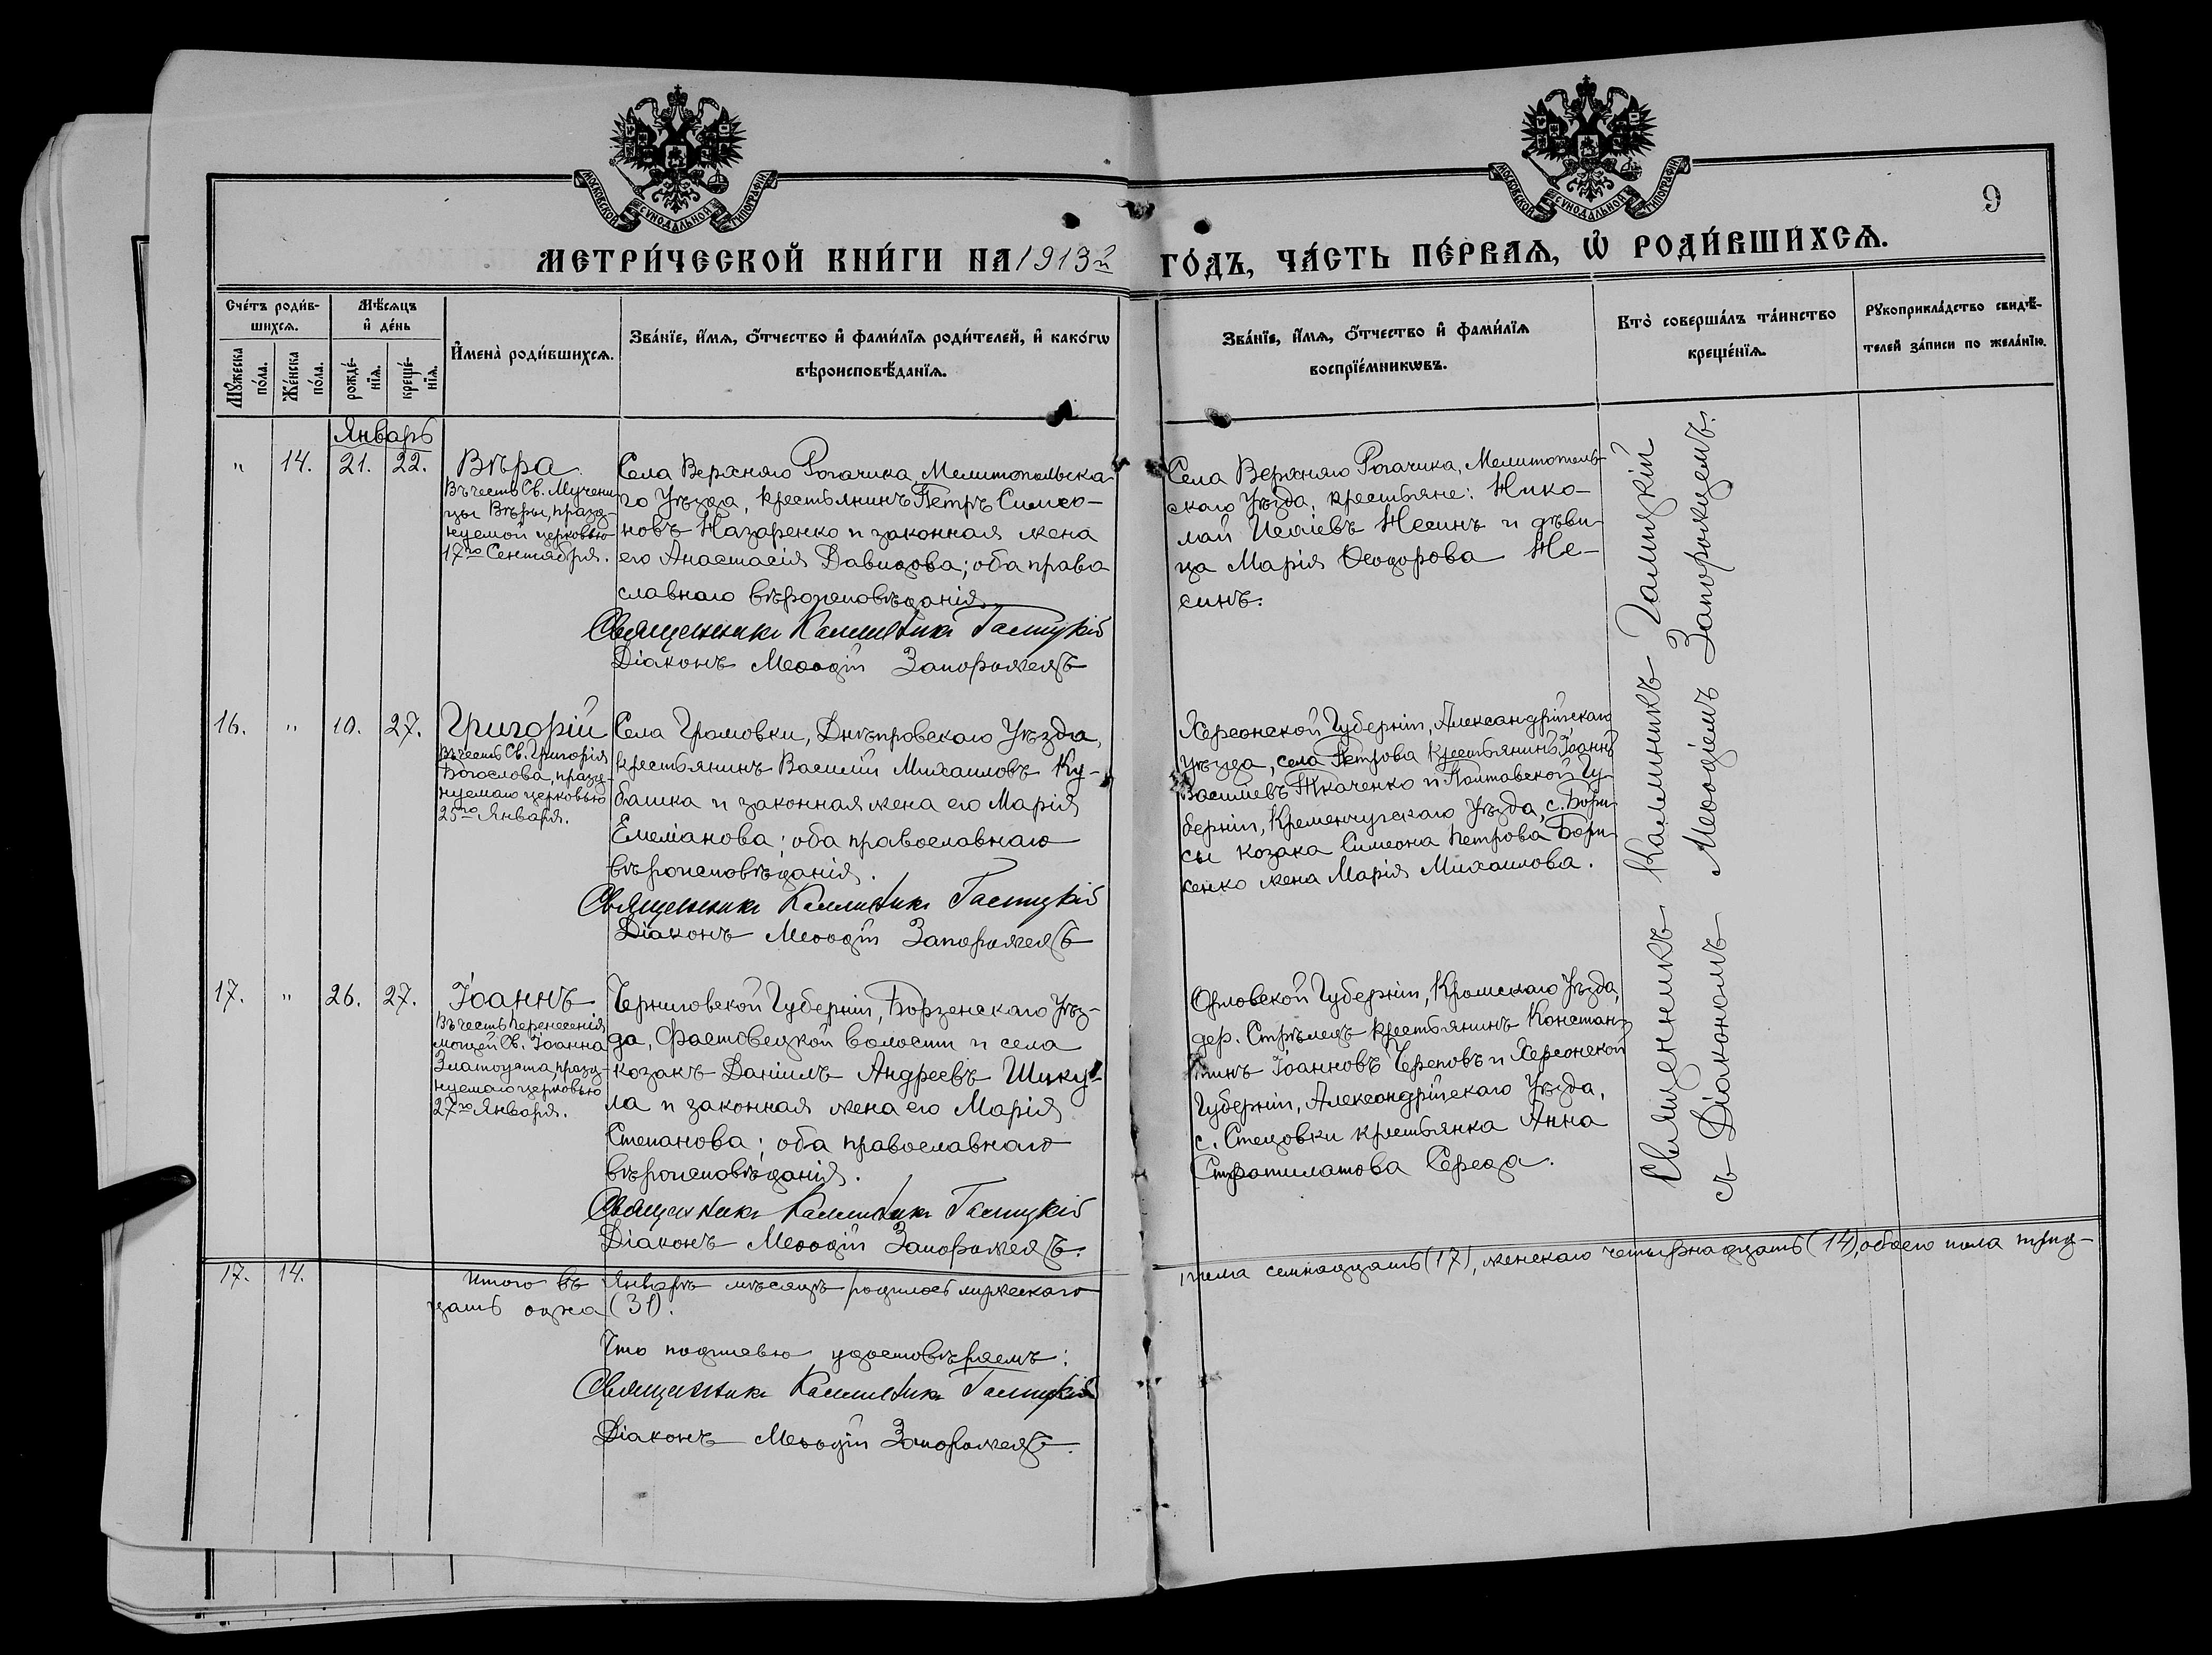 МОСКОВСКОЙ СУНОДАЛЬНОЙ ТИПОГРАФІИ
МОСКОВСКОЙ СУНОДАЛЬНОЙ ТИПОГРАФІИ
9
МЕТРИ́ЧЕСКОЙ КНИ́ГИ НА 1913й ГО́ДЪ, ЧА́СТЬ ПЕ́РВАѦ, Ѽ РОДИ́ВШИХСѦ.
Сче́тъ роди́в-
шихсѧ.
Мꙋ́жеска
по́ла.
Же́нска
по́ла.
Мѣ́сѧцъ
и҆ де́нь
рожде́-
нїѧ.
креще́-
нїѧ.
И҆мена̀ роди́вшихсѧ.
Зва́нїе, и҆́мѧ, ѻ҆́тчество и҆ фами́лїѧ роди́телей, и҆ како́гѡ
вѣроисповѣ́данїѧ.
Зва́нїе, и҆́мѧ, ѻ҆́тчество и҆ фами́лїѧ
воспрїе́мникѡвъ.
Кто̀ соверша́лъ та́инство
креще́нїѧ.
Рꙋкоприкла́дство свидѣ́-
телей за́писи по жела́нїю.
Январь
" 14. 21. 22.
Вѣра
Въ честь Св. Мучени-
цы Вѣры, празд-
нуемой церковью
17го Сентября.
Села Верхняго Рогачика, Мелитопольска-
го Уѣзда, крестьянинъ Петръ Симео-
новъ Назаренко и законная жена
его Анастасія Давидова; оба право
славнаго вѣроисповѣданія
Священникъ Каллиникъ Галицкій
Діаконъ Меѳодій Запорожецъ
Села Верхняго Рогачика, Мелитополь-
скаго Уѣзда, крестьяне: Нико-
лай Исаіевъ Несинъ и дѣви-
ца Марія Ѳеодорова Не-
синъ.
16. " 10. 27.
Григорій
Въ честь Св. Григорія
Богослова, празд-
нуемаго церковью
25го Января.
Села Громовки, Днѣпровскаго Уѣзда,
крестьянинъ Василій Михаиловъ Ку-
башка и законная жена его Марія
Емеліанова; оба православнаго
вѣроисповѣданія.
Священникъ Каллиникъ Галицкій
Діаконъ Меѳодій Запорожецъ
Херсонской Губерніи, Александрійскаго
Уѣзда, села Петрова крестьянинъ Іоаннъ
Василіевъ Ткаченко и Полтавской Гу-
берніи, Кременчугскаго Уѣзда, с. Бори-
сы козака Симеона Петрова Бори-
сенко жена Марія Михаилова.
17. " 26. 27.
Іоаннъ
Въ честь Перенесенія
мощей Св. Іоанна
Златоуста, празд-
нуемаго церковью
27го Января.
Черниговской Губерніи, Борзенскаго Уѣз-
да, Фастовецкой волости и села
козакъ Даніилъ Андреевъ Шику-
ла и законная жена его Марія
Степанова; оба православнаго
вѣроисповѣданія.
Священникъ Каллиникъ Галицкій
Діаконъ Меѳодій Запорожецъ.
Орловской Губерніи, Кромскаго Уѣзда,
дер. Стрѣлецъ крестьянинъ Констан-
тинъ Іоанновъ Череповъ и Херсонской
Губерніи, Александрійскаго Уѣзда,
с. Стецовки крестьянка Анна
Стратилатова Середа.
Священникъ Каллиникъ Галицкій
съ Діакономъ Меѳодіемъ Запорожцемъ.
17. 14.
Итого въ Январѣ мѣсяцѣ родилось мужескаго пола семнадцать (17), женскаго четырнадцать (14), обоего пола трид-
цать одна (31).
Что подписью удостовѣряемъ:
Священникъ Каллиникъ Галицкій
Діаконъ Меѳодій Запорожецъ.